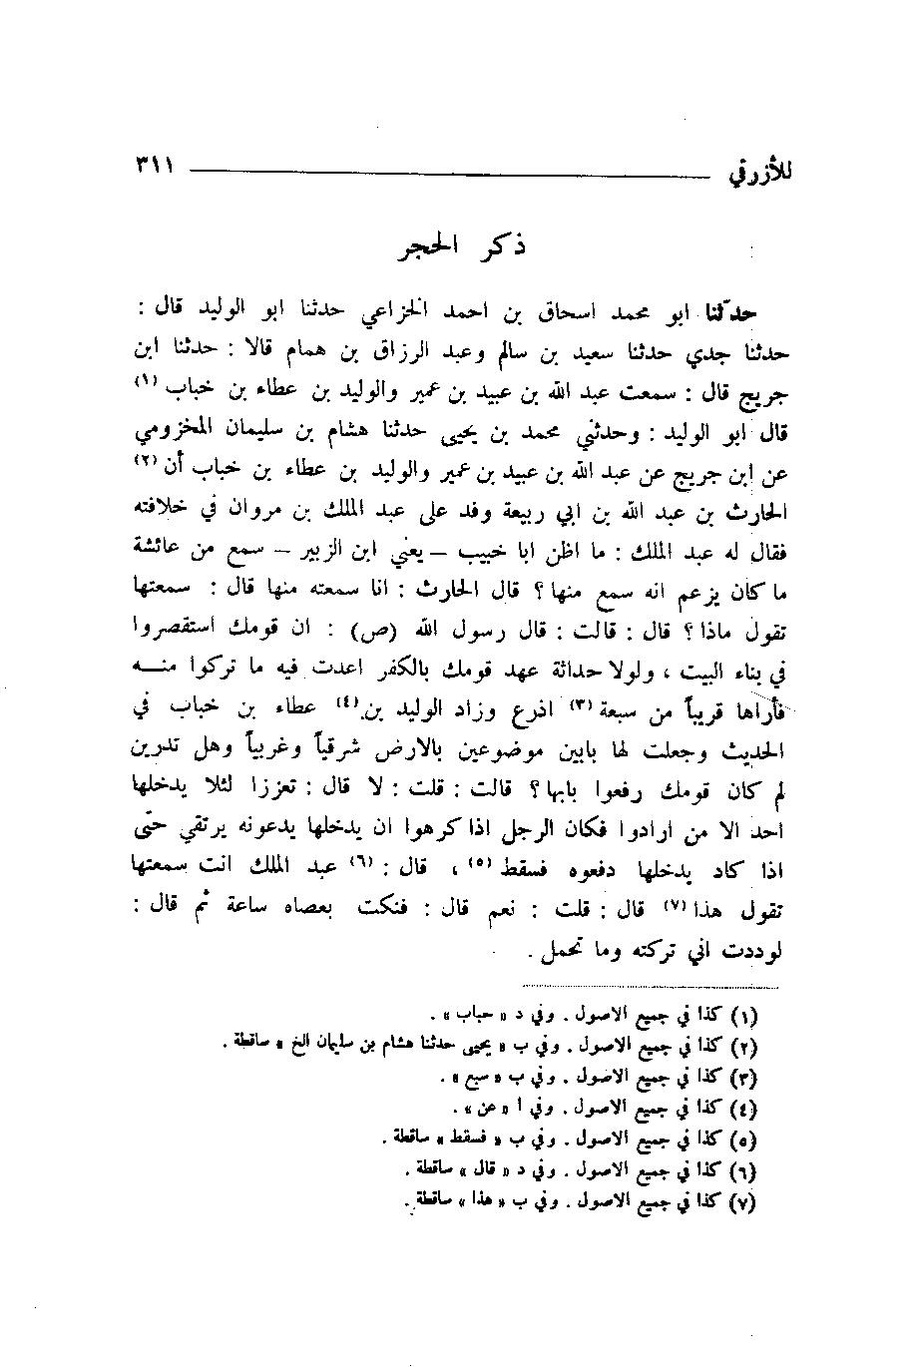 للأزرقي ٣١١
ذكر الحجر
حدّثنا ابو محمد اسحاق بن احمد الخزاعي حدثنا ابو الوليد قال :
حدثنا جدي حدثنا سعيد بن سالم وعبد الرزاق بن همام قالا : حدثنا ابن
جريج قال : سمعت عبد الله بن عبيد بن عمير والوليد بن عطاء بن خباب (١)
قال ابو الوليد : وحدثني محمد بن يحيى حدثنا هشام بن سليمان المخزومي
عن ابن جريج عن عبد الله بن عبيد بن عمير والوليد بن عطاء بن خباب أن (٢)
الحارث بن عبد الله بن ابي ربيعة وفد على عبد الملك بن مروان في خلافته
فقال له عبد الملك : ما اظن ابا خبيب – يعني ابن الزبير – سمع من عائشة
ما كان يزعم انه سمع منها ؟ قال الحارث : انا سمعته منها قال : سمعتها
تقول ماذا ؟ قال : قالت : قال رسول الله (ص) : ان قومك استقصروا
في بناء البيت ، ولولا حداثة عهد قومك بالكفر اعدت فيه ما تركوا منـــه
فأراها قريباً من سبعة (٣) اذرع وزاد الوليد بن (٤) عطاء بن خباب في
الحديث وجعلت لها بابين موضوعين بالارض شرقياً وغربياً وهل تدرين
لم كان قومك رفعوا بابها ؟ قالت : قلت : لا قال : تعززا لئلا يدخلها
احد الا من ارادوا فكان الرجل اذا كرهوا ان يدخلها يدعونه يرتقي حتى
اذا كاد يدخلها دفعوه فسقط (٥) ، قال : (٦) عبد الملك انت سمعتها
تقول هذا (٧) قال : قلت : نعم قال : فنكت بعصاه ساعة ثم قال :
لوددت اني تركته وما تحمل .
(١) كذا في جميع الاصول . وفي د « حباب » .
(٢) كذا في جميع الاصول . وفي ب « يحيى حدثنا هشام بن سليمان الخ » ساقطة .
(٣) كذا في جميع الاصول . وفي ب « سبع » .
(٤) كذا في جميع الاصول . وفي ا « عن » .
(٥) كذا في جميع الاصول . وفي ب « فسقط » ساقطة .
(٦) كذا في جميع الاصول . وفي د « قال » ساقطة .
(٧) كذا في جميع الاصول . وفي ب « هذا » ساقطة .